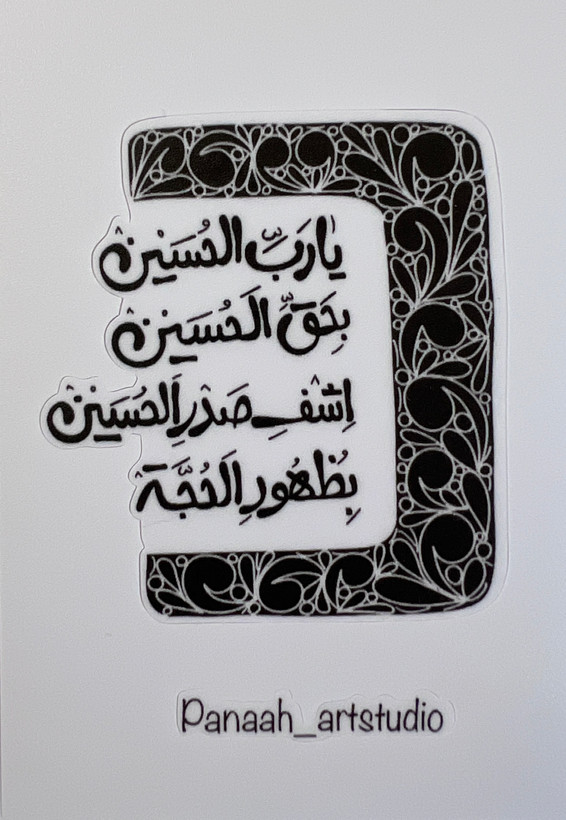 يا رَبِّ الحُسَيْنْ
بِحَقِّ الحُسَيْنْ
اِشْفِ صَدْرَ الحُسَيْنْ
بِظُهُورِ الحُجَّة
Panaah_artstudio